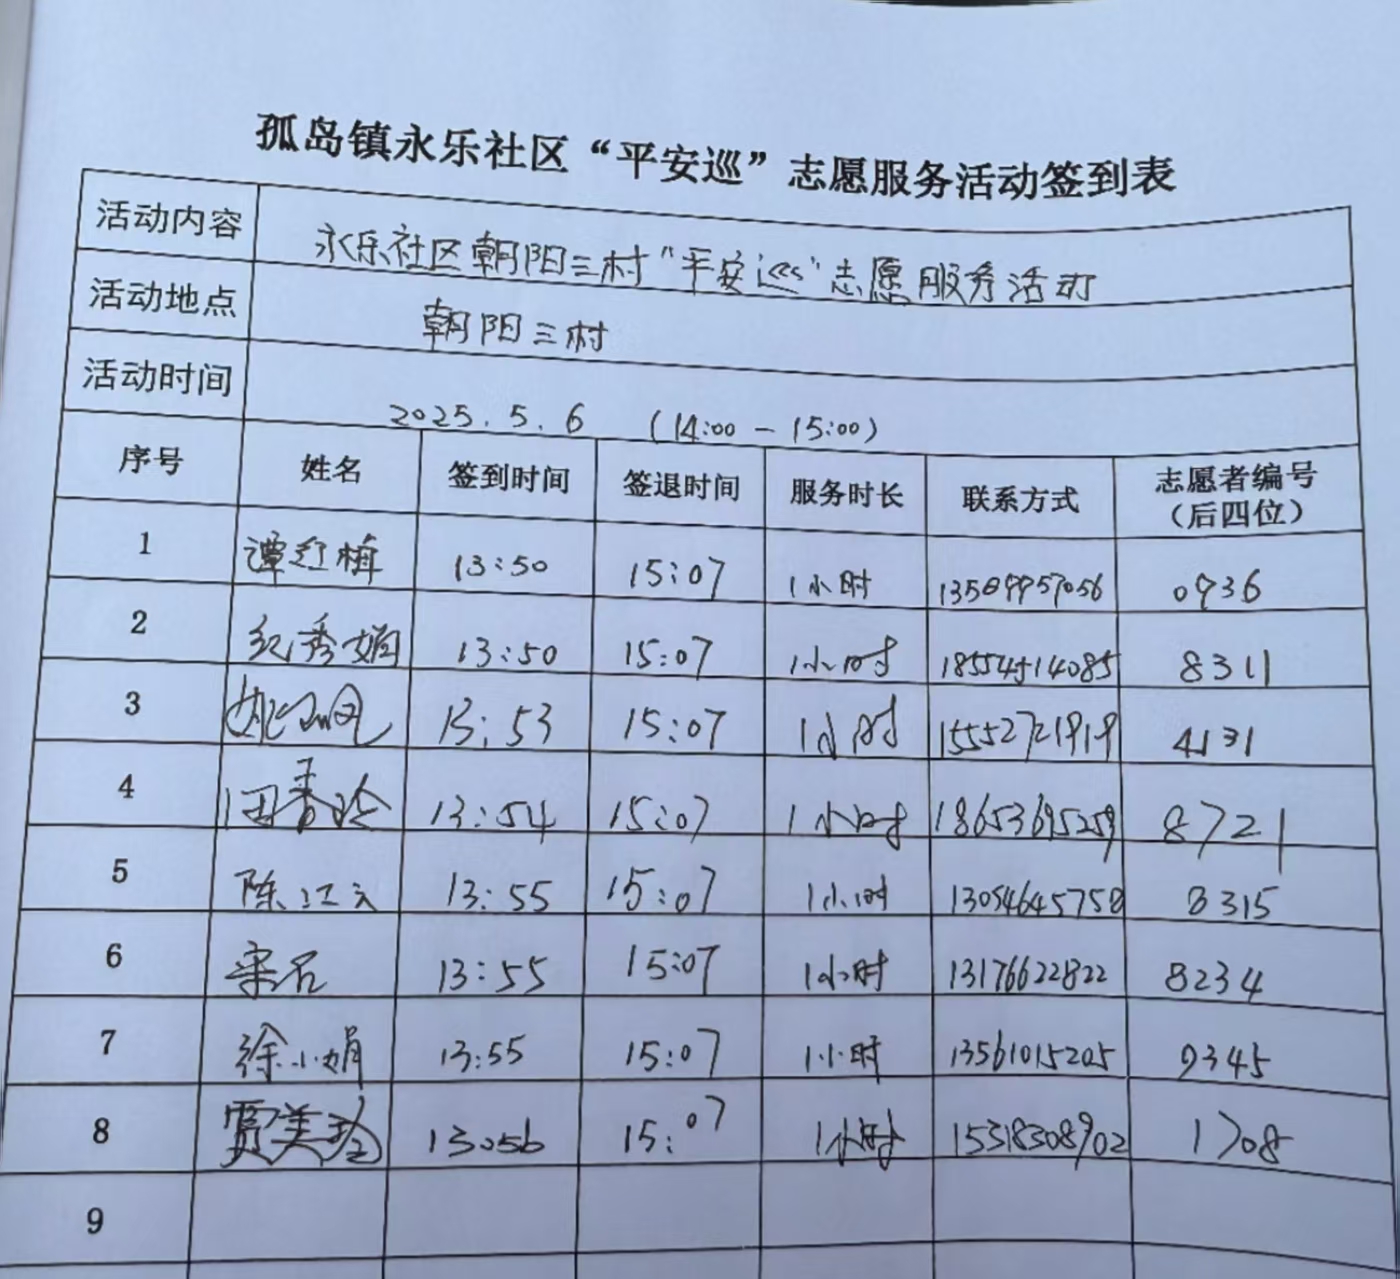 孤岛镇永乐社区“平安巡”志愿服务活动签到表
活动内容 永乐社区朝阳三村“平安巡”志愿服务活动
活动地点 朝阳三村
活动时间 2025.5.6 (14:00-15:00)
序号 姓名 签到时间 签退时间 服务时长 联系方式 志愿者编号(后四位)
1 谭红梅 13:50 15:07 1小时 13589957056 0936
2 纪秀娟 13:50 15:07 1小时 18554514085 8311
3 13:53 15:07 1小时 15552721919 4131
4 田香玲 13:54 15:07 1小时 18653695259 8721
5 陈江云 13:55 15:07 1小时 13054645758 8315
6 宋石 13:55 15:07 1小时 13176622822 8234
7 徐小娟 13:55 15:07 1小时 13561015205 9345
8 贾美玲 13:56 15:07 1小时 15318308902 1708
9